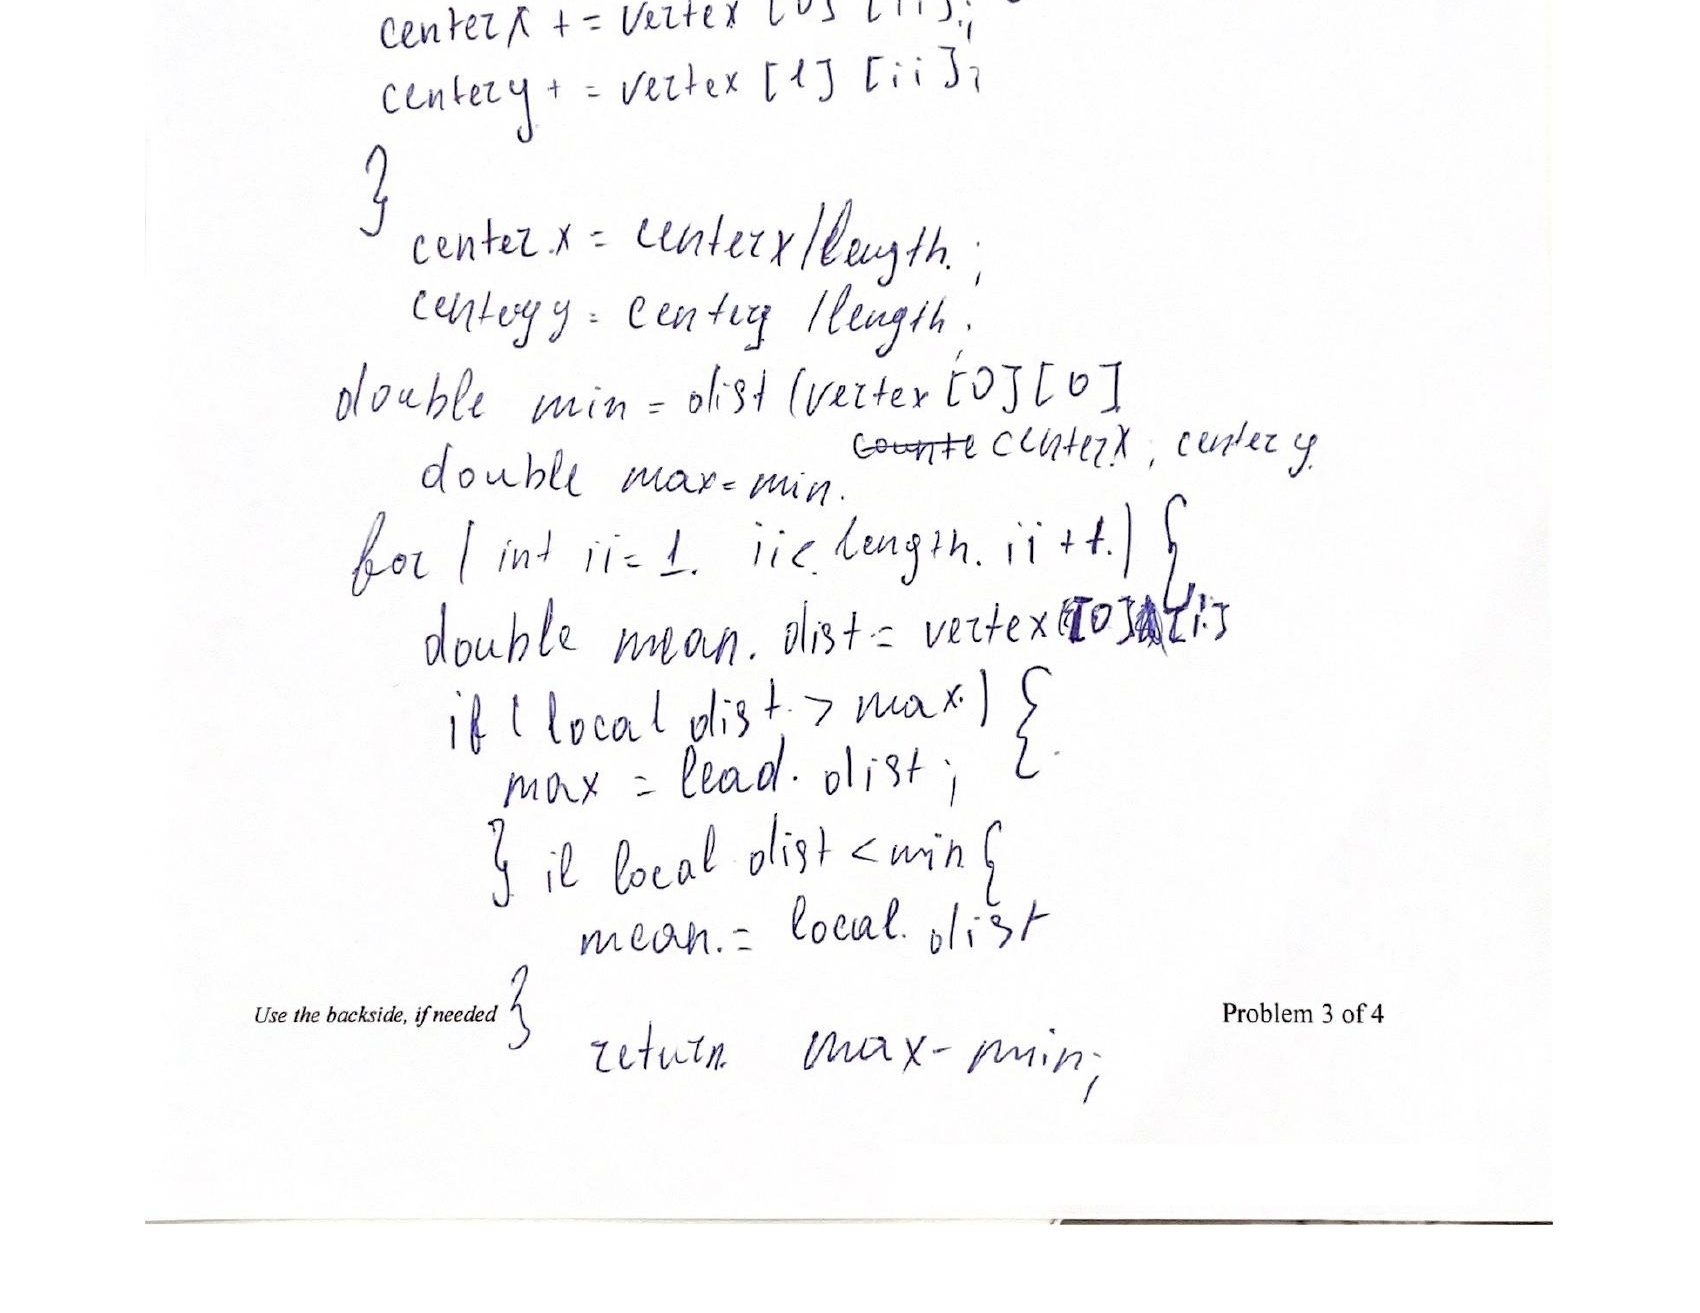 centerx += vertex [0] [ii];
centery + = vertex [1] [ii];
}
center.x = centerx/length.;
centery y = centery /length.;
double min = dist (vertex [0] [0]
counte centerx, center y
double max = min.
for ( int ii = 1. ii < length. ii ++.) {
double mean. dist = vertex [0] [i]
if ( local dist. > max.) {
max = lead. dist ;
} if local dist < min {
mean. = local. dist
Use the backside, if needed }
Problem 3 of 4
return max - min;